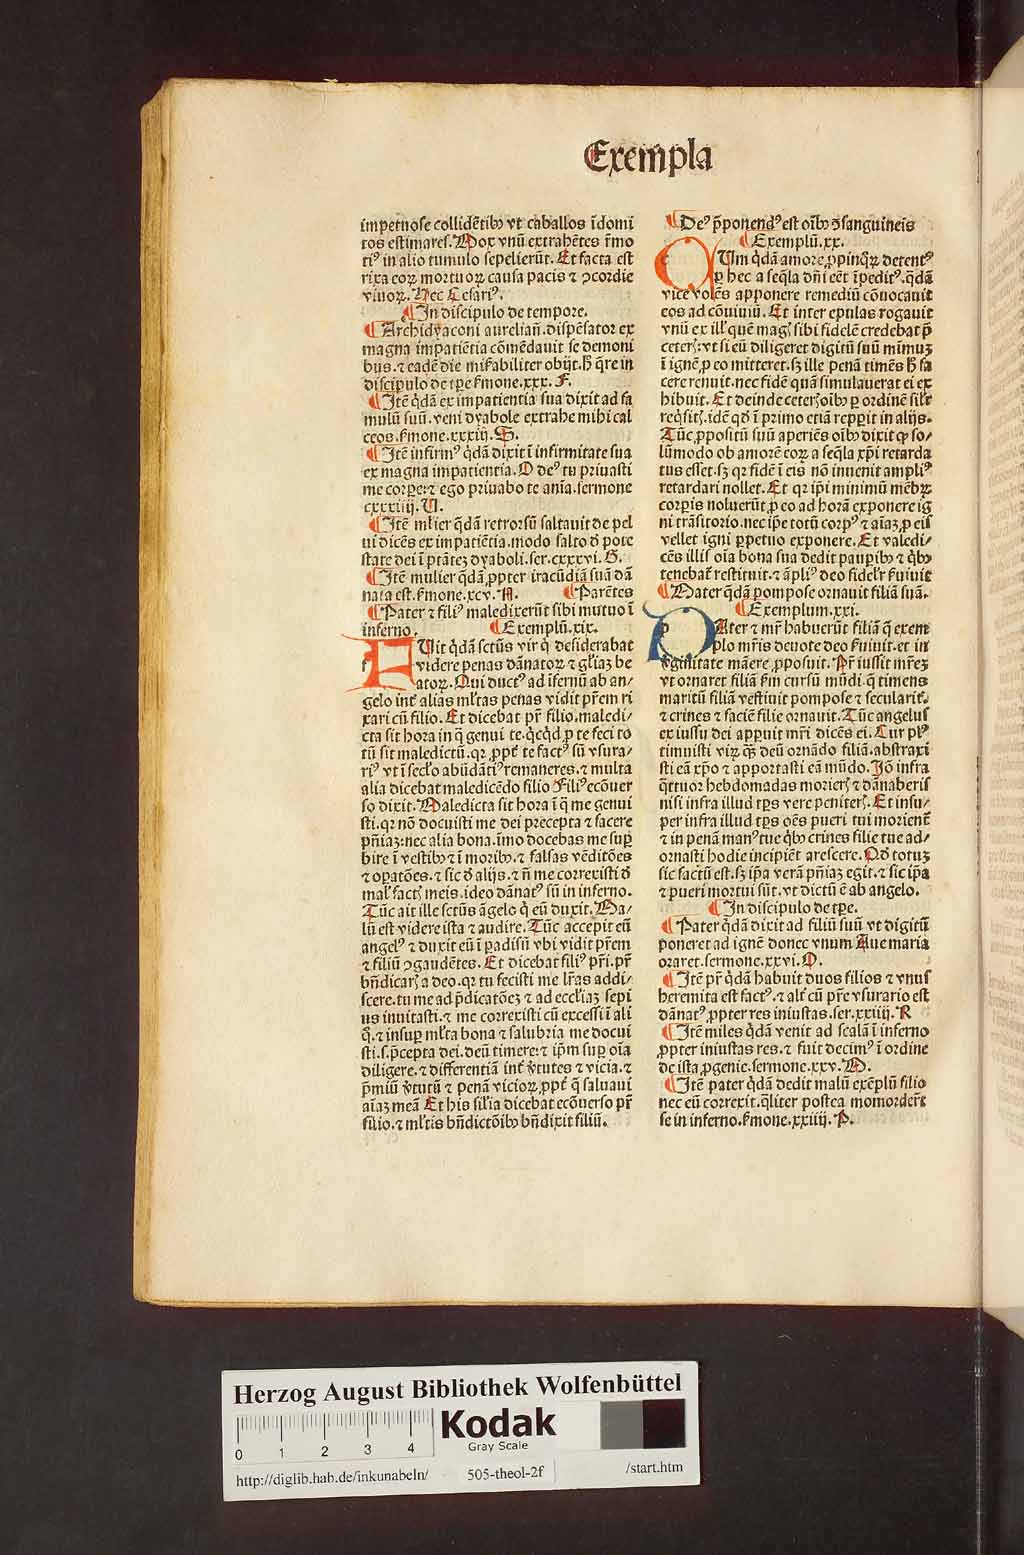 Exempla
impetuose collidētibꝰ vt caballos īdomi
tos estimares. Mox vnū extrahētes r̄mo
tiꝰ in alio tumulo sepelierūt. Et facta est
rixa eoꝝ mortuoꝝ causa pacis ⁊ ꝯcordie
viuoꝝ. Hec Cesariꝰ.
¶In discipulo de tempore.
¶Archidyaconi aureliañ. dispēsator ex
magna impatiētia cōmēdauit se demoni
bus. ⁊ eadē die mirabiliter obijt. h̄ q̄re in
discipulo de tp̄e s̄mone. xxx. F.
¶Itē q̇dā ex impatientia sua dixit ad fa
mulū suū. veni dyabole extrahe mihi cal
ceos. s̄mone. xxxiij. S.
¶Itē infirmꝰ q̇dā dixit ī infirmitate sua
ex magna impatientia. O deꝰ tu priuasti
me corpe: ⁊ ego priuabo te aīa. sermone
cxxxiiij. U.
¶Itē ml̓ier q̇dā retrorsū saltauit de pel
ui dicēs ex impatiētia. modo salto d̓ pote
state dei ī ptātez dyaboli. ser. cxxxvi. S.
¶Itē mulier q̇dā ꝓpter iracūdiā suā dā
nata est. s̄mone. xcv. A. ¶Parētes
¶Pater ⁊ filiꝰ maledixerūt sibi mutuo ī
inferno. ¶Exemplū. xix.
f Uit q̇dā sctūs vir q̇ desiderabat
videre penas dānatoꝝ ⁊ gl̓iaz be
atoꝝ. Qui ductꝰ ad īfernū ab an/
gelo int̓ alias ml̓tas penas vidit pr̄em ri
xari cū filio. Et dicebat pr̄ filio. maledi/
cta sit hora in q̄ genui te. q̇cq̇d ꝓ te feci to
tū sit maledictū. qꝛ ꝓpt̓ te factꝰ sū vsura/
riꝰ vt ī secl̓o abūdātiꝰ remaneres. ⁊ multa
alia dicebat maledicēdo filio Filiꝰ ecōuer
so dixit. Maledicta sit hora ī q̄ me genui
sti. qꝛ nō docuisti me dei precepta ⁊ facere
pn̄iaz: nec alia bona. īmo docebas me sup
bire ī vestibꝰ ⁊ ī moribꝰ. ⁊ falsas vēditōes
⁊ opatōes. ⁊ sic d̓ alijs. ⁊ n̄ me correxisti d̓
mal̓ fact̓ meis. ideo dānatꝰ sū in inferno.
Tūc ait ille sctūs āgelo q̇ eū duxit. Ma/
lū est videre ista ⁊ audire. Tūc accepit eū
angelꝰ ⁊ duxit eū ī padisū vbi vidit pr̄em
⁊ filiū ꝯgaudētes. Et dicebat filiꝰ pr̄i. pr̄
bn̄dicar̓ a deo. qꝛ tu fecisti me lr̄as addi/
scere. tu me ad p̄dicatōez ⁊ ad eccl̓iaz sepi
us inuitasti. ⁊ me correxisti cū excessi ī ali
q̇. ⁊ insup ml̓ta bona ⁊ salubria me docui
sti. s. p̄cepta dei. deū timere: ⁊ ip̄m sup oīa
diligere. ⁊ differentiā int̓ v̓tutes ⁊ vicia. ⁊
p̄miū v̓tutū ⁊ penā vicioꝝ. ꝓpt̓ q̄ saluaui
aīaz meā Et his sil̓ia dicebat ecōuerso pr̄
filio. ⁊ ml̓tis bn̄dictōibꝰ bn̄dixit filiū.
¶Deꝰ p̄ponendꝰ est oībꝰ ꝯsanguineis
¶Exemplū. xx.
c Um q̇dā amore ꝓpinq̄ꝝ detentꝰ
ꝑ hec a seq̄la dn̄i eēt īpeditꝰ. q̇dā
vice volēs apponere remediū cōuocauit
eos ad cōuiuiū. Et inter epulas rogauit
vnū ex ill̓ quē mag̓ sibi fidelē credebat p̄
ceter̓: vt si eū diligeret digitū suū mimuz
ī ignē ꝓ eo mitteret. sꝫ ille penā timēs h̄ fa
cere renuit. nec fidē quā simulauerat ei ex
hibuit. Et deinde ceter̓ oībꝰ ꝑ ordinē sil̓r
reqͥsit̓. idē qd̓ ī primo etiā repperit in alijs.
Tūc ꝓpositū suū aperiēs oībꝰ dixit ꝙ so/
lūmodo ob amorē eoꝝ a seq̄la xp̄i retarda
tus esset. sꝫ qꝛ fidē ī eis nō inuenit ampliꝰ
retardari nollet. Et qꝛ ip̄i minimū mēbꝝ
corpis noluerūt ꝓ eo ad horā exponere ig
ni trāsitorio. nec ip̄e totū corpꝰ ⁊ aīaz ꝓ eis
vellet igni ꝑpetuo exponere. Et valedi/
cēs illis oīa bona sua dedit paupibꝰ ⁊ q̇bꝰ
tenebat̓ restituit. ⁊ āpliꝰ deo fidel̓r s̓uiuit
¶Mater q̇dā pompose ornauit filiā suā.
¶Exemplum. xxi.
p Ater ⁊ mr̄ habuerūt filiā q̄ exem
plo mr̄is deuote deo s̓uiuit. et in
v̓ginitate māere ꝓposuit. Pr̄ iussit mr̄ez
vt ornaret filiā s̄m cursū mūdi. q̄ timens
maritū filiā vestiuit pompose ⁊ secularit̓.
⁊ crines ⁊ faciē filie ornauit. Tūc angelus
ex iussu dei apparuit mr̄i dicēs ei. Cur plꝰ
timuisti virꝝ q̄ꝫ deū ornādo filiā. abstraxi
sti eā xp̄o ⁊ apportasti eā mūdo. Iō infra
q̄ttuor hebdomadas morier̓ ⁊ dānaberis
nisi infra illud tp̄s vere peniter̓. Et insu/
per infra illud tp̄s oēs pueri tui morient̓
⁊ in penā manꝰ tue q̇bꝰ crines filie tue ad/
ornasti hodie incipiēt arescere. Qd̓ totuz
sic factū est. sꝫ ip̄a verā pn̄iaz egit. ⁊ sic ip̄a
⁊ pueri mortui sūt. vt dictū ē ab angelo.
¶In discipulo de tp̄e.
¶Pater q̇dā dixit ad filiū suū vt digitū
poneret ad ignē donec vnum Aue maria
oraret. sermone. xxvi. O.
¶Itē pr̄ q̇dā habuit duos filios ⁊ vnus
heremita est factꝰ. ⁊ alt̓ cū pr̄e vsurario est
dānatꝰ ꝓpter res iniustas. ser. xxiiij. R
¶Itē miles q̇dā venit ad scalā ī inferno
ꝓpter iniustas res. ⁊ fuit decimꝰ ī ordine
de ista ꝓgenie. sermone. xxv. M.
¶Itē pater q̇dā dedit malū exēplū filio
nec eū correxit. q̄liter postea momorder̄t
se in inferno. s̄mone. xxiiij. P.
Herzog August Bibliothek Wolfenbüttel
0 1 2 3 4
Kodak
Gray Scale
http://diglib.hab.de/inkunabeln/ 505-theol-2f /start.htm